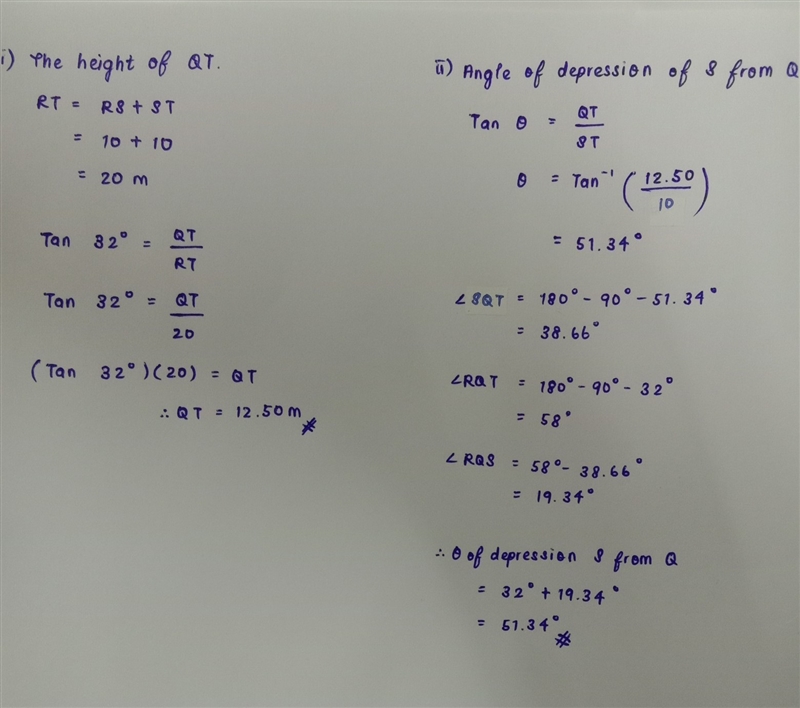 i) The height of QT.
RT = RS + ST
= 10 + 10
= 20 m
Tan 32° = QT / RT
Tan 32° = QT / 20
(Tan 32°)(20) = QT
∴ QT = 12.50 m
ii) Angle of depression of S from Q
Tan θ = QT / ST
θ = Tan⁻¹ (12.50 / 10)
= 51.34°
∠SQT = 180° - 90° - 51.34°
= 38.66°
∠RQT = 180° - 90° - 32°
= 58°
∠RQS = 58° - 38.66°
= 19.34°
∴ θ of depression S from Q
= 32° + 19.34°
= 51.34°